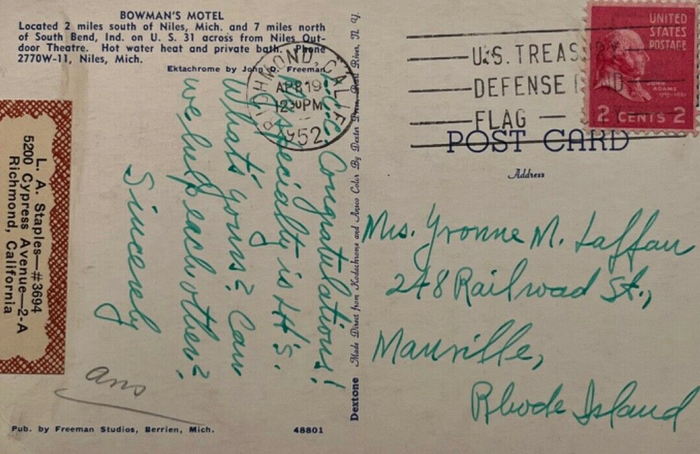 BOWMAN'S MOTEL
Located 2 miles south of Niles, Mich. and 7 miles north
of South Bend, Ind. on U. S. 31 across from Niles Out-
door Theatre. Hot water heat and private bath. Phone
2770W-11, Niles, Mich.
Ektachrome by John D. Freeman
L. A. Staples—#3694
5200 Cypress Avenue—2-A
Richmond, California
Congratulations!
specialty is LH's.
What's yours? Can
we help each other?
Sincerely
ans
Pub. by Freeman Studios, Berrien, Mich.
48801
Dextone
Made Direct from Kodachrome and Ansco Color By Dexter Press, Pearl River, N. Y.
RICHMOND, CALIF.
APR 19
12 30 PM
1952
U.S. TREASURY
DEFENSE BOND
FLAG
UNITED
STATES
POSTAGE
JOHN
ADAMS
2 CENTS 2
POST CARD
Address
Mrs. Yvonne M. Laffan
248 Railroad St.,
Manville,
Rhode Island